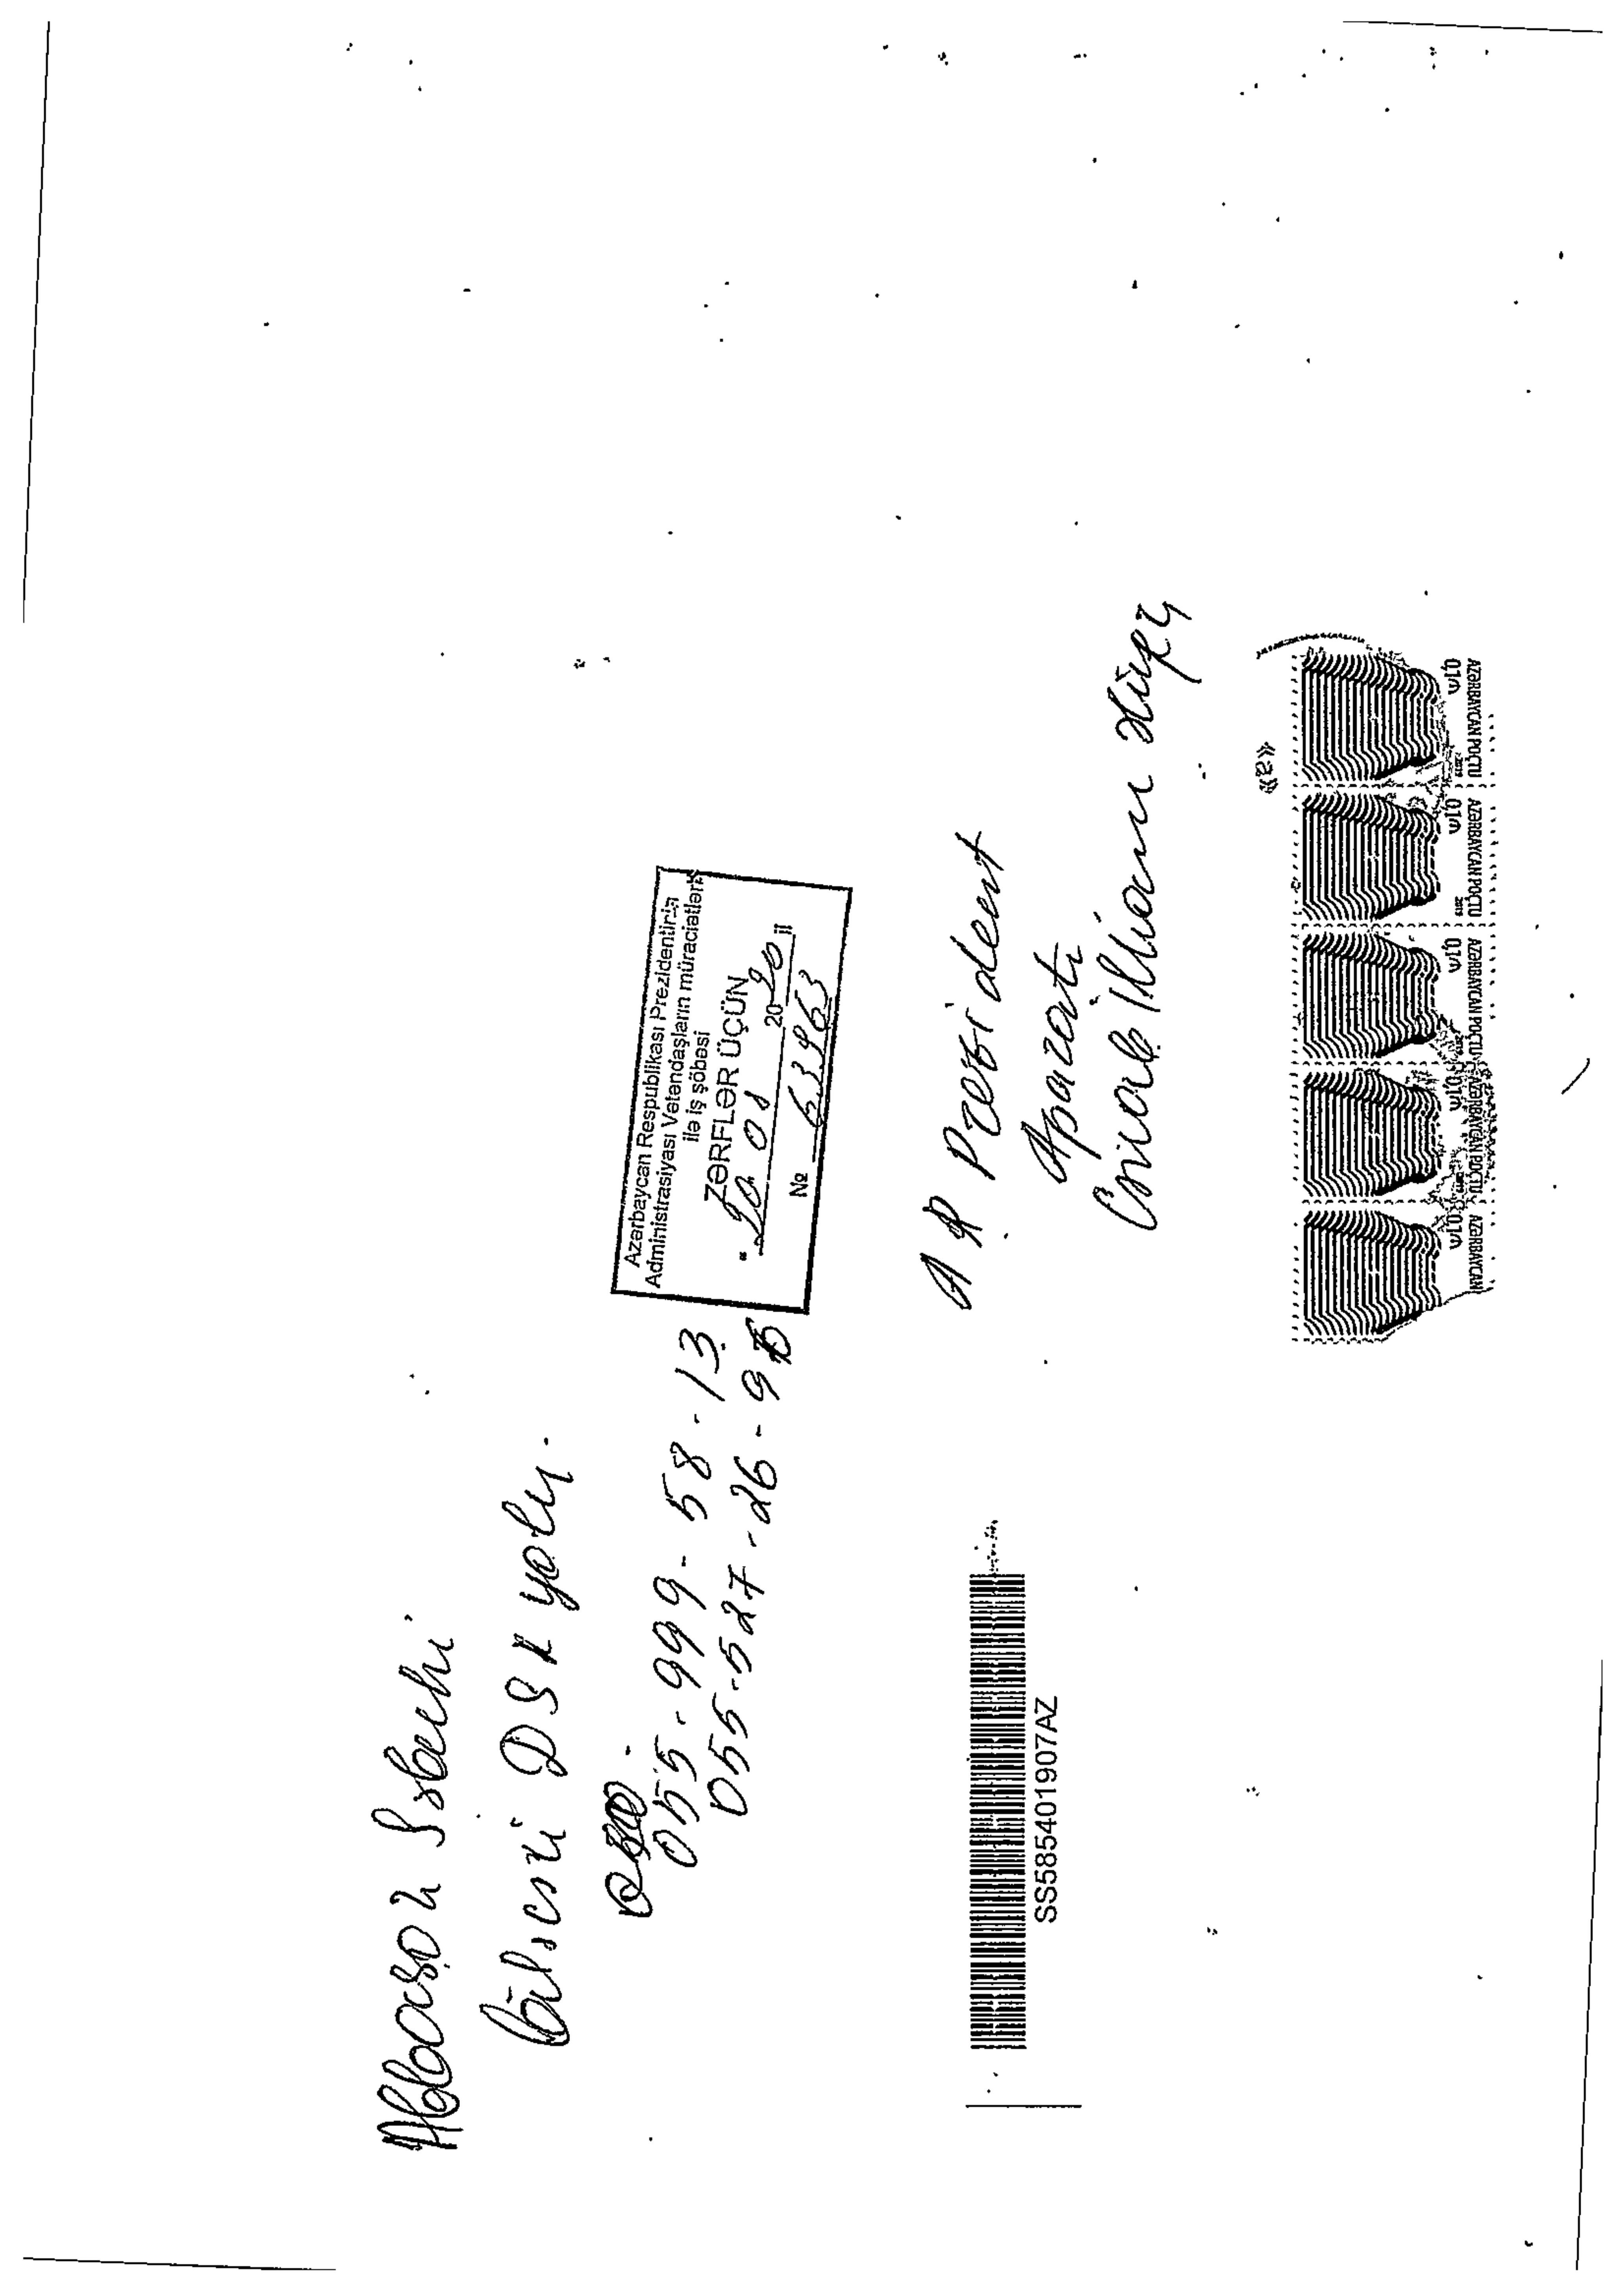 Abbasov Sabuhi
DSK yolu.
055-999-58-13
055-527-26-95
Azərbaycan Respublikası Prezidentinin
Administrasiyası Vətəndaşların müraciətləri
ilə iş şöbəsi
ZƏRFLƏR ÜÇÜN
"20 01 2020 il
№ 63963
AR Prezident
Aparatı
Cənab İlham
SS585401907AZ
«a»
AZƏRBAYCAN POÇTU
AZƏRBAYCAN POÇTU
AZƏRBAYCAN POÇTU
AZƏRBAYCAN POÇTU
AZƏRBAYCAN